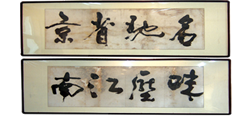 名馳省京
味壓江南